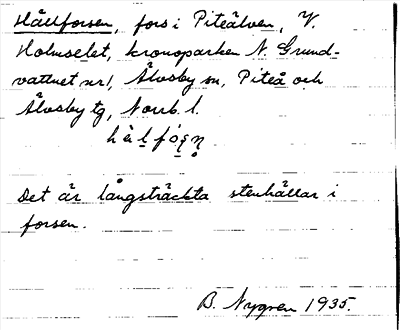 Hällforsen, fors i Piteälven, V.
Holmselet, kronoparken N. Grund-
vattnet nr 1, Älvsby sn, Piteå och
Älvsby tg, Norrb. l.
Det är långsträckta stenhällar i
forsen.
B. Nygren 1935.